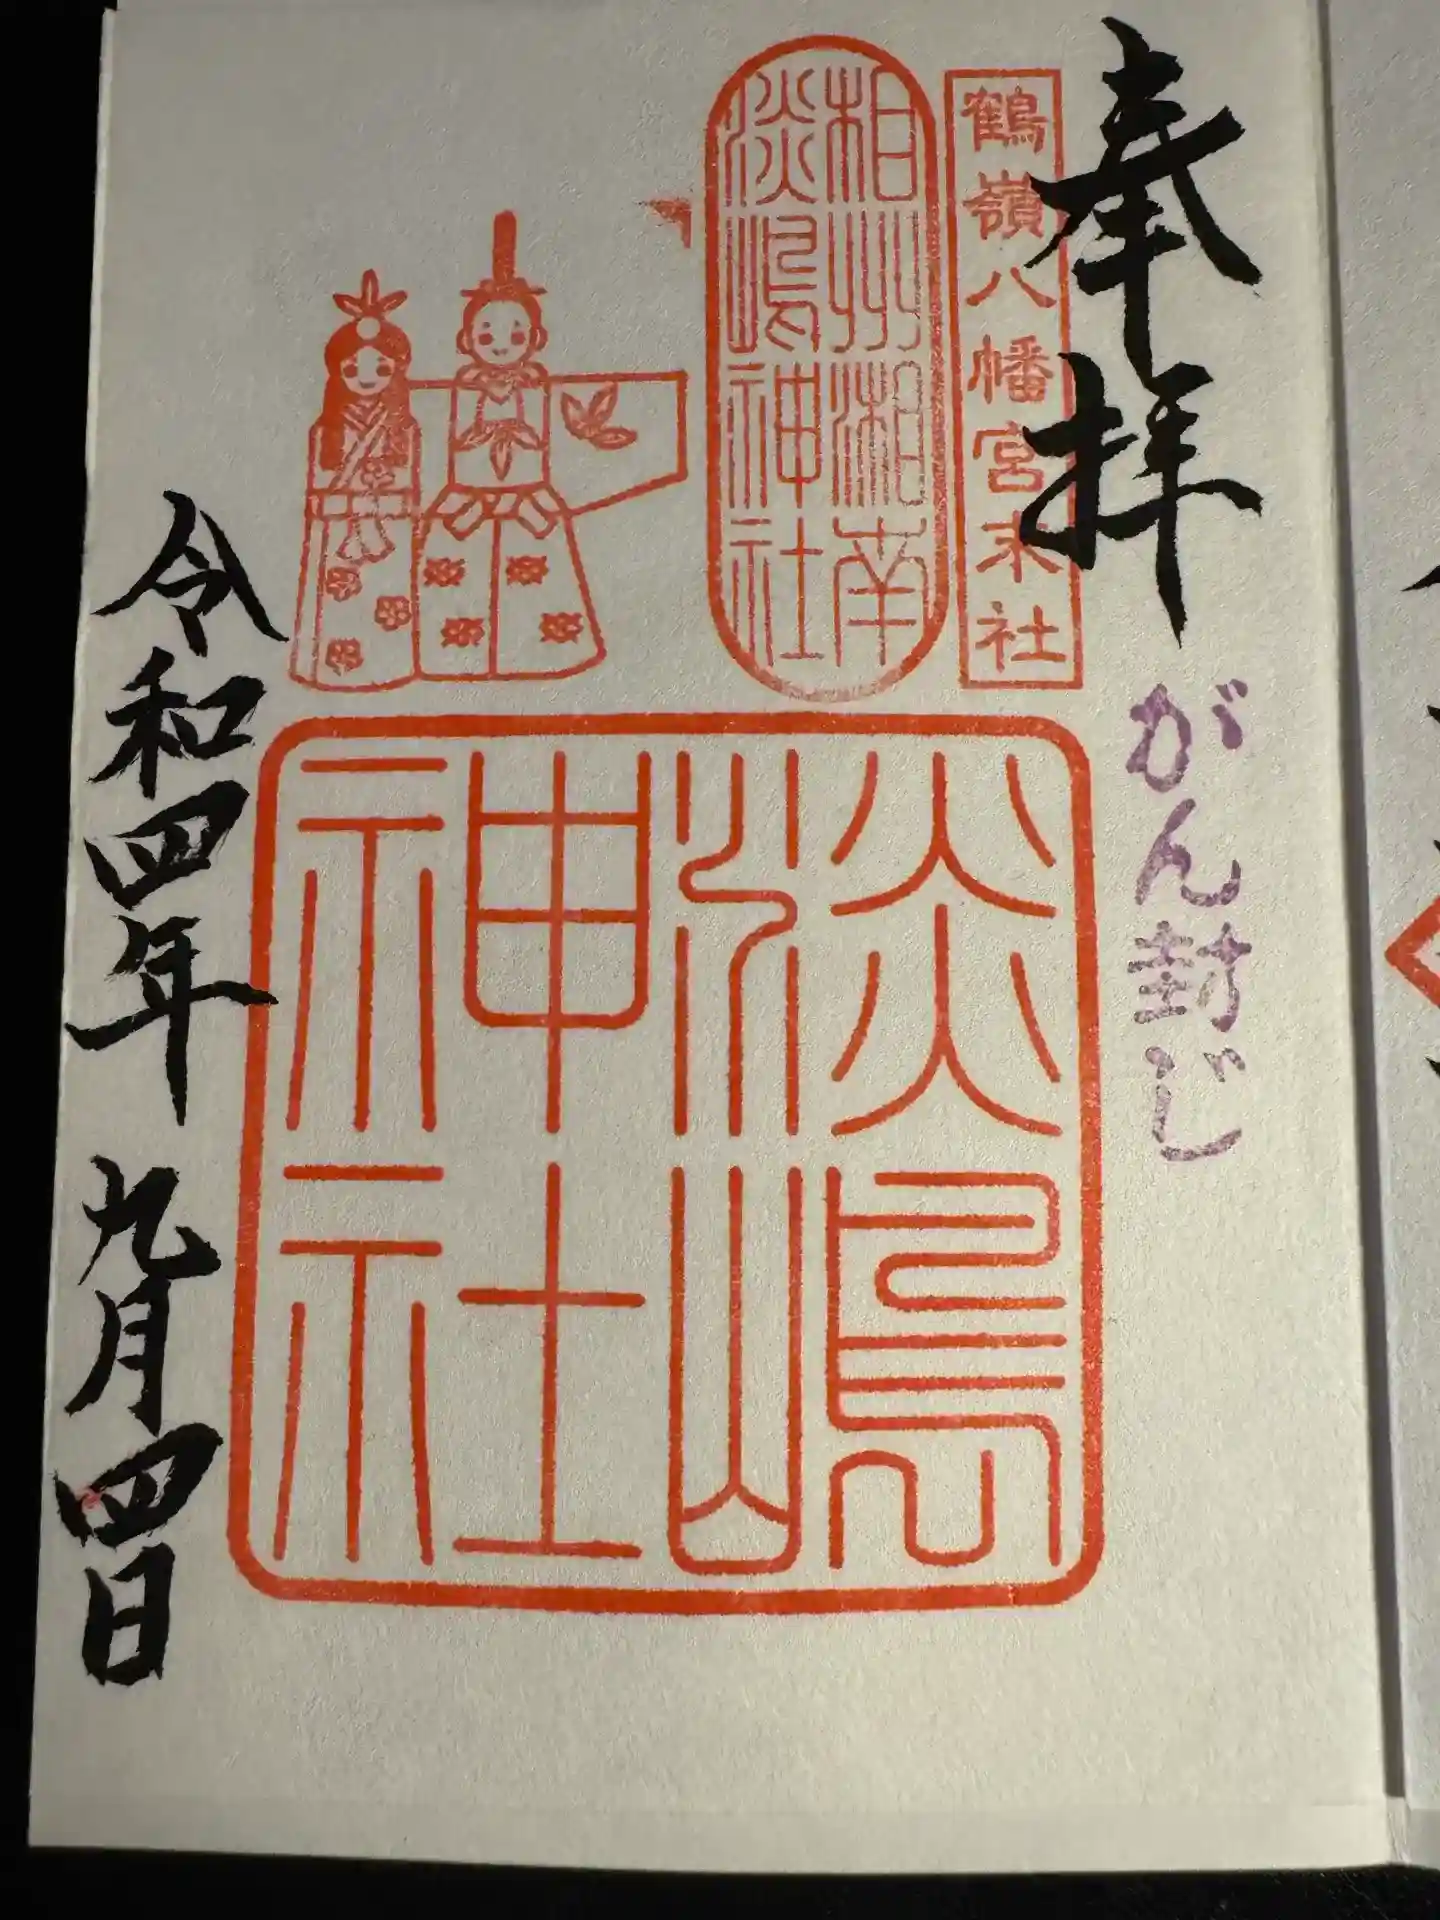 奉拝
がん封じ
鶴嶺八幡宮末社
相州湘南
淡嶋神社
淡嶋
神社
令和四年 九月四日